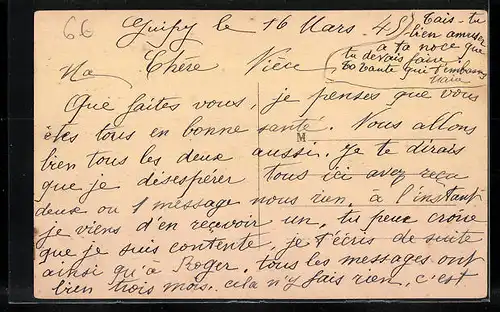 66
Guipy le 16 Mars. 45
Ma Chère Nièce
tais-tu
bien amuser
a ta noce que
tu devais faire.
Ta tante qui t'embrasse
Que faites vous, je penses que vous
êtes tous en bonne santé. Nous allons
M
bien tous les deux aussi. Je te dirais
que je désespérer tous ici avez reçu
deux ou 1 message nous rien, à l'instant
je viens d'en recevoir un, tu peux croire
que je suis contente, je t'écris de suite
ainsi qu'à Roger, tous les messages ont
bien trois mois, cela n'y fais rien, c'est